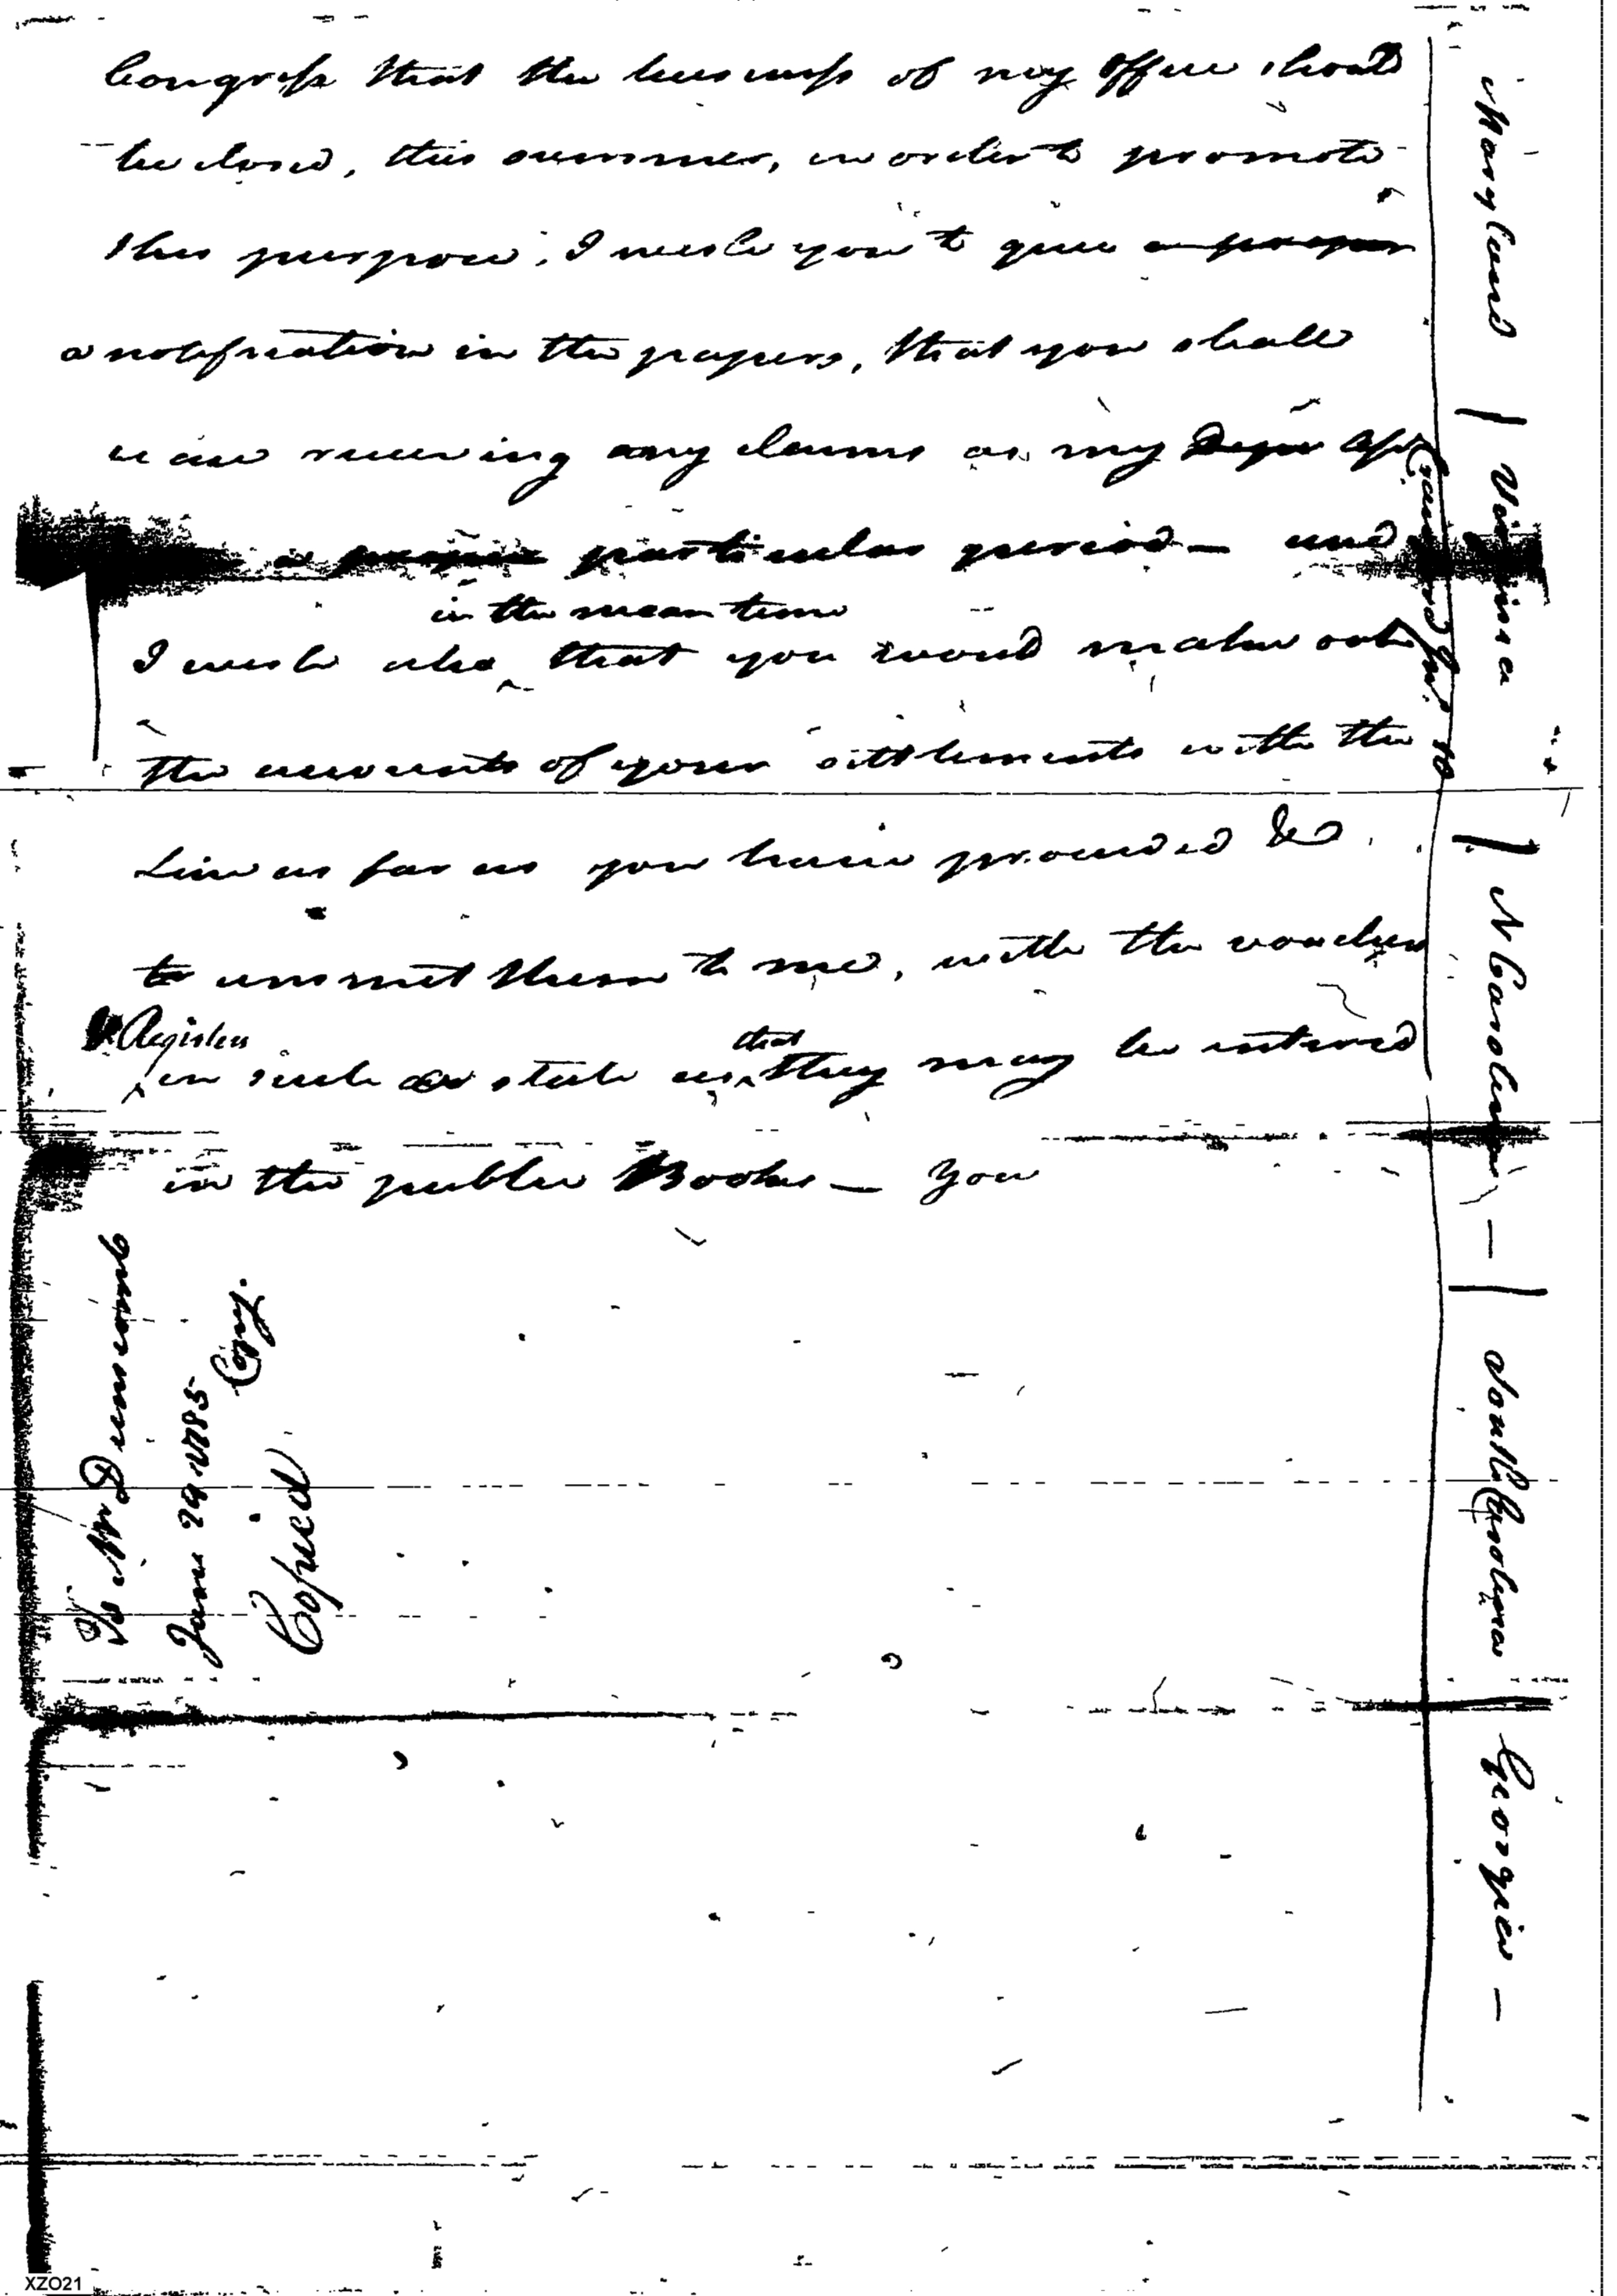 Congress that the business of my Office should
be closed, this summer, in order to promote
this purpose, I wish you to give a proper
a notification in the papers, that you shall
cease receiving any claims as my
a particular period — and
in the mean time
I wish also that you would make out
the accounts of your settlements with the
Line as far as you have proceeded &
to transmit them to me, with the vouchers
Register
in such a state as that they may be entered
in the public Books — You
To Mr Dunscomb
June 29 1785
Copy.
Copied
Maryland | Virginia | N Carolina — | South Carolina | Georgia —
XZO21